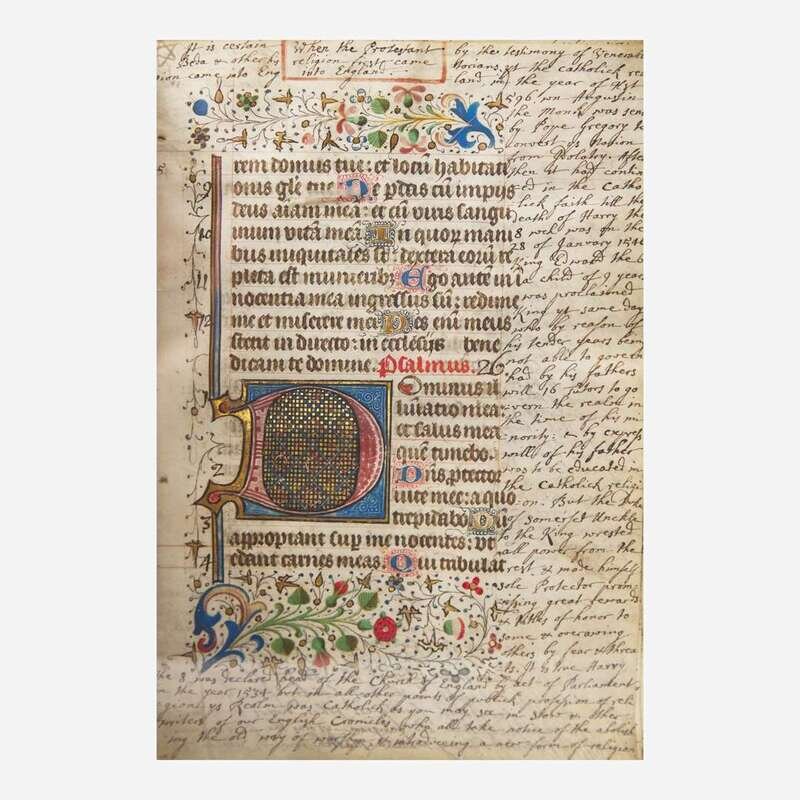 It is certain
When the Protestant
religion first came
into England.
by the testimony of Venerab
Beda & other hy
torians, yt the Catholick re
gion came into Eng
land, in the year of Xst
596, wn Augustin
the Monk was sen
by Pope Gregory to
convert ys Nation
from Idolatry. After
then it had contin
ed in the Catho
lick faith till the
death of Harry the
8 wch was on the
28 of January 1546
King Edward the 6
a child of 9 years
was proclaimed
King ys same day
who by reason of
his tender years being
not able to govern
had by his fathers
will 16 Tutors to go
vern the realm in
the time of his mi
nority: & by express
will of his father
was to be educated in
the Catholick religi
on. But the Duke
of Somerset Unckle
to the King wrested
all power from the
rest & made himself
sole Protector prom
ising great rewards
& titles of honor to
some & overawing
others by fear & threa
ts. It is true Harry
the 8 was declared head of the Church of England by act of Parliament,
in the year 1534 but in all other points of publick profession of reli
gion ys Realm was Catholick as you may see in Stow & other
writers of our English Cronicles, who all take notice of the abolish
ing the old way of worship & introducing a new form of religion
rem domus tue: et locū habitati
9 onis glē tue Ne ꝑdas cū impijs
deus aīam meā: et cū viris sangui
10 num vitā meā In quoꝝ mani
bus iniquitates sūt dextera eorū re
11 pleta est muneribꝫ Ego autē in i
nocentia mea ingressus sū: redime
12 me et miserere mei Pes enī meus
stetit in directo: in ecclesijs bene
dicam te domine. Psalmus. 26
1 Dominus il
luminatio mea:
et salus mea
2 quē timebo.
Dn̄s ꝓtector
vite mee: a quo
3 trepidabo Dū
appropiant suꝑ me nocentes: vt
4 edant carnes meas Qui tribulāt